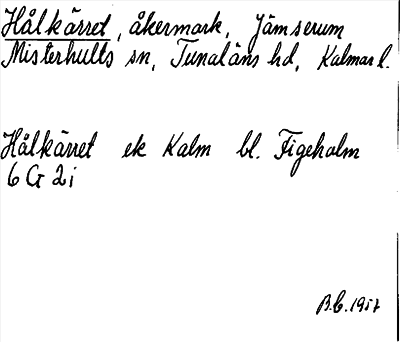 Hålkärret, åkermark, Jämserum
Misterhults sn, Tunaläns hd, Kalmar l.
Hålkärret ek Kalm bl. Figeholm
6 G 2i
B.C. 1957